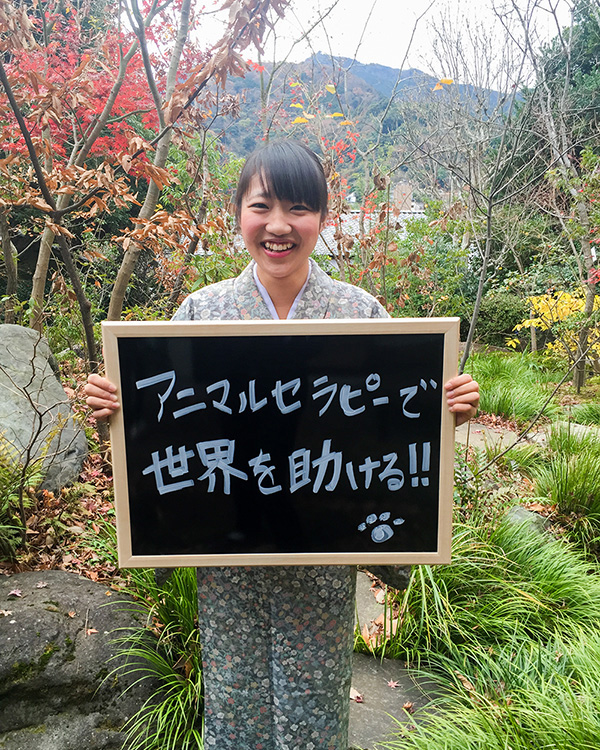 アニマルセラピーで
世界を助ける!!